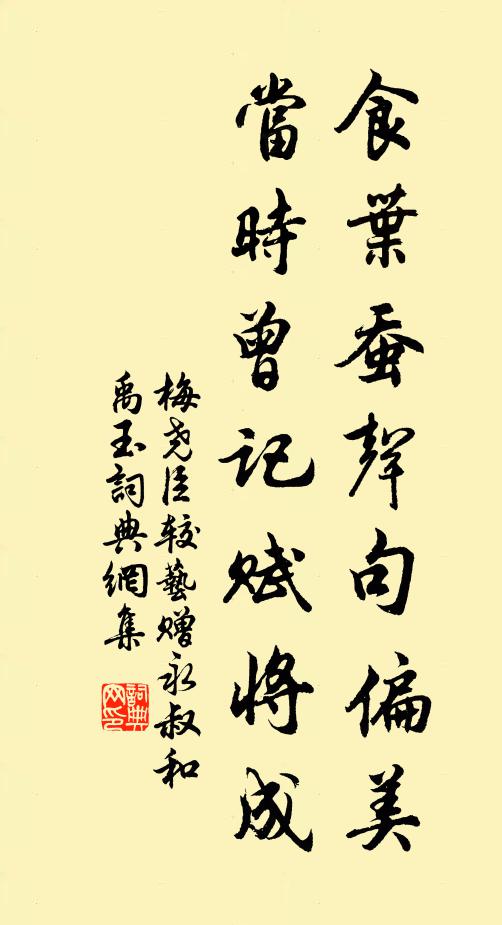 食葉蚕聲句偏美
當時曾記賦將成
梅尧臣较藝贈永叔和
禹玉詞典網集
詞典网印